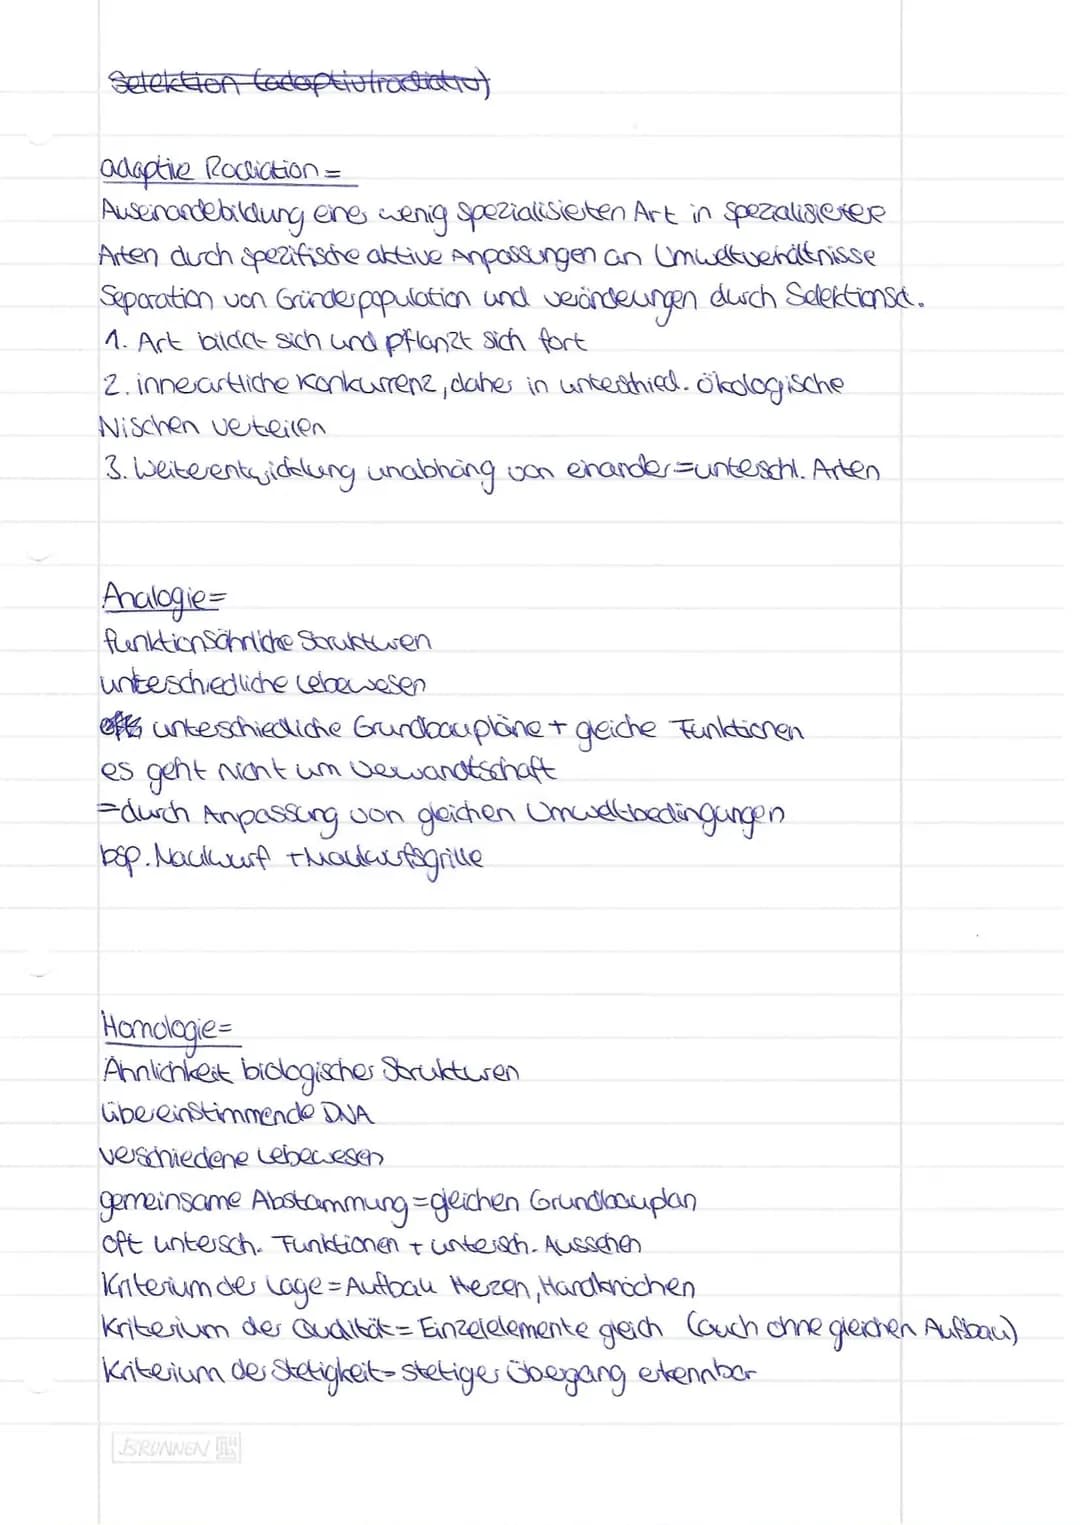 Selektion (adaptivradiativ)
adaptive Radiation =
Auseinandebildung einer wenig spezialisierten Art in spezialisierter
Arten durch spezifische aktive Anpassungen an Umweltverhältnisse
Separation von Gründerpopulation und veränderungen durch Selektionsd.
1. Art bildet sich und pflanzt sich fort
2. innerartliche Konkurrenz, daher in unterschied. ökologische
Nischen verteilen
3. Weiterentwicklung unabhäng von einander = unterschl. Arten
Analogie =
funktionsähnliche Strukturen
unterschiedliche Lebewesen
unterschiedliche Grundbaupläne + gleiche Funktionen
es geht nicht um Verwandtschaft
= durch Anpassung von gleichen Umweltbedingungen
bsp. Maulwurf + Maulwurfsgrille
Homologie =
Ähnlichkeit biologischer Strukturen
übereinstimmende DNA
verschiedene Lebewesen
gemeinsame Abstammung = gleichen Grundbauplan
oft untersch. Funktionen + untersch. Aussehen
Kriterium der Lage = Aufbau Herzen, Handknochen
Kriterium der Qualität = Einzelelemente gleich (auch ohne gleichen Aufbau)
Kriterium der Stetigkeit = stetiger Übergang erkennbar
BRUNNEN